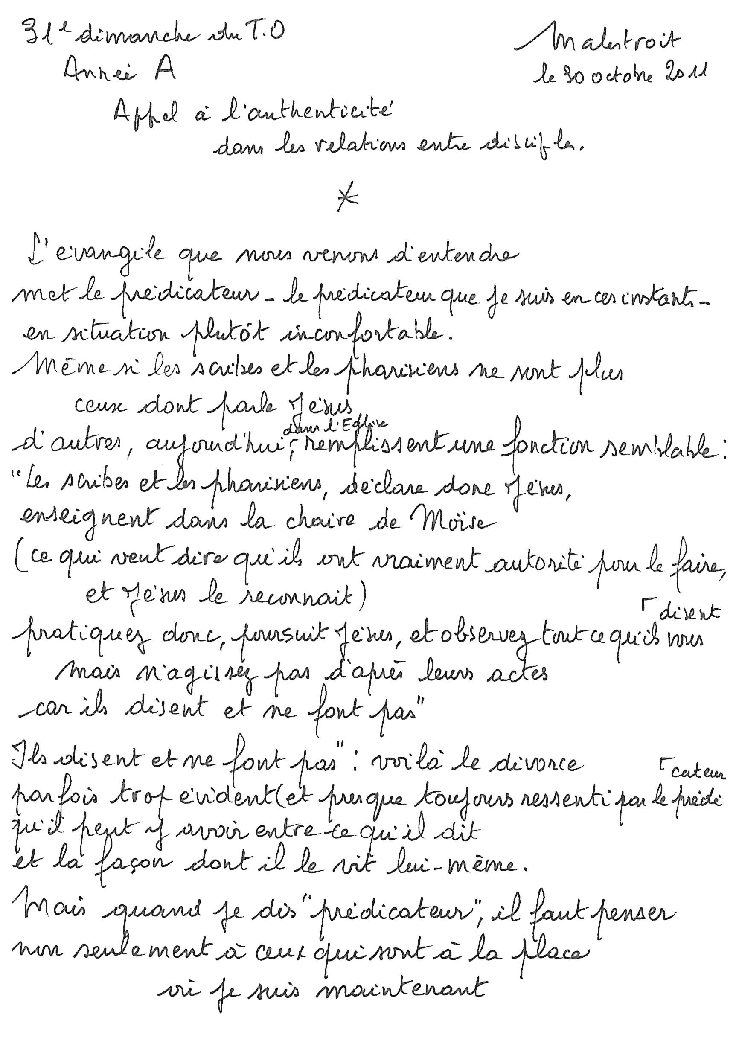 31e dimanche du T.O
Malestroit
Année A
le 30 octobre 2011
Appel à l'authenticité
dans les relations entre disciples.
L'évangile que nous venons d'entendre
met le prédicateur - le prédicateur que je suis en ces instants -
en situation plutôt inconfortable.
Même si les scribes et les pharisiens ne sont plus
ceux dont parle Jésus
dans l'Eglise
d'autres, aujourd'hui, remplissent une fonction semblable :
"Les scribes et les pharisiens, déclare donc Jésus,
enseignent dans la chaire de Moïse
(ce qui veut dire qu'ils ont vraiment autorité pour le faire,
et Jésus le reconnait)
disent
pratiquez donc, poursuit Jésus, et observez tout ce qu'ils vous
mais n'agissez pas d'après leurs actes
car ils disent et ne font pas"
Ils disent et ne font pas" : voilà le divorce
cateur
parfois trop évident (et presque toujours ressenti par le prédi
qu'il peut y avoir entre ce qu'il dit
et la façon dont il le vit lui-même.
Mais quand je dis "prédicateur", il faut penser
non seulement à ceux qui sont à la place
où je suis maintenant